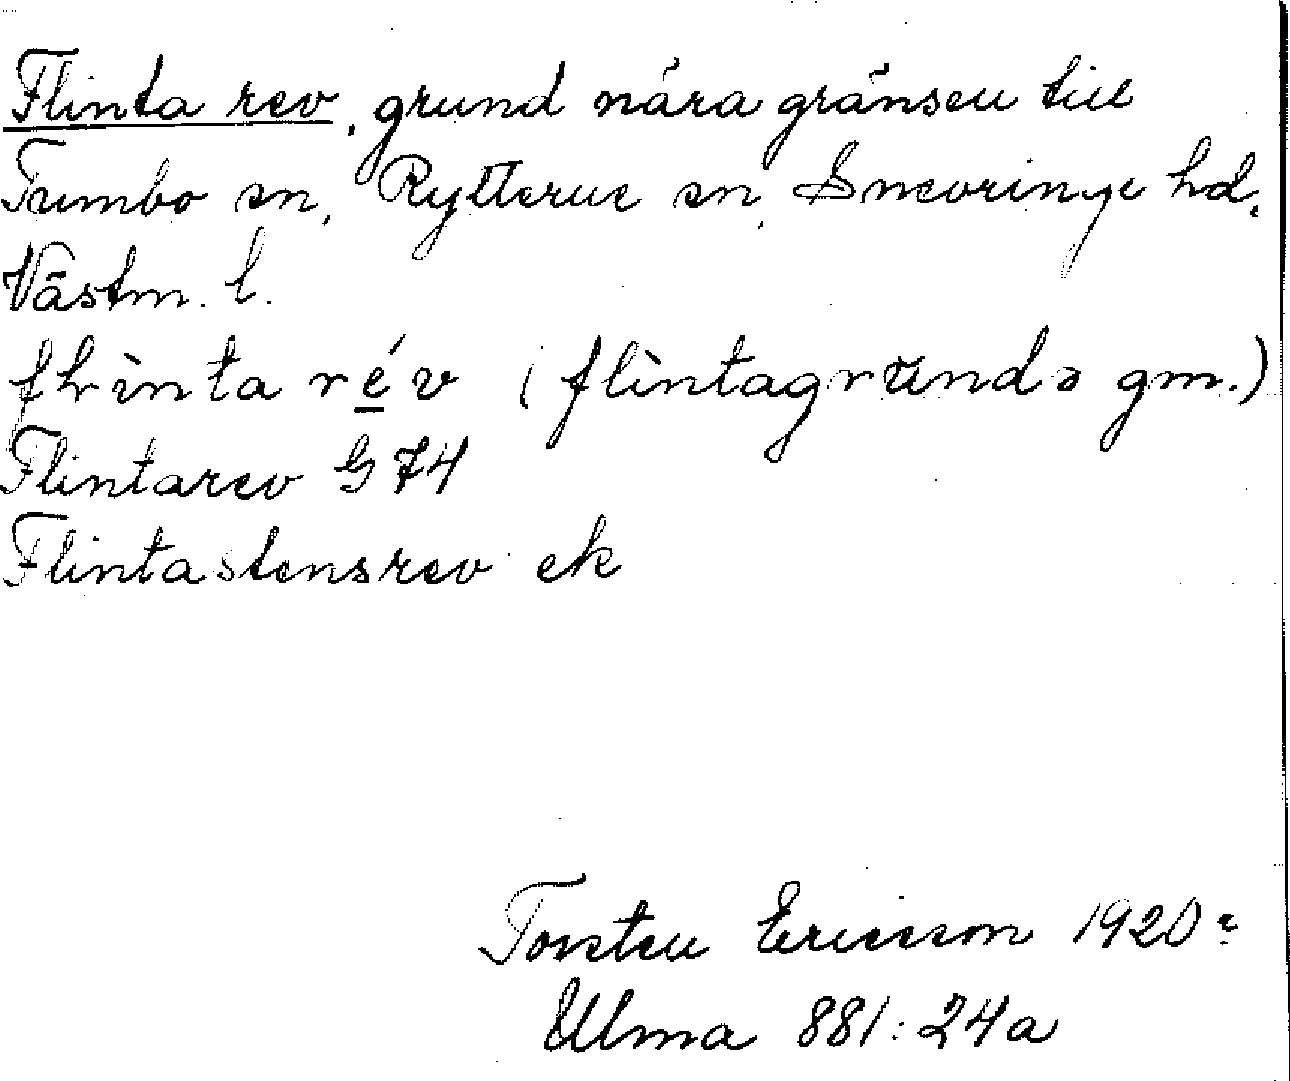 Flinta rev, grund nära gränsen till
Tumbo sn, Rytterne sn, Snevringe hd,
Västm. l.
flìnta rév (flìntagrŭndə gm.)
Flintarev G 74
Flintastensrev ek
Torsten Ericsson 1920?
Ulma 881:24a